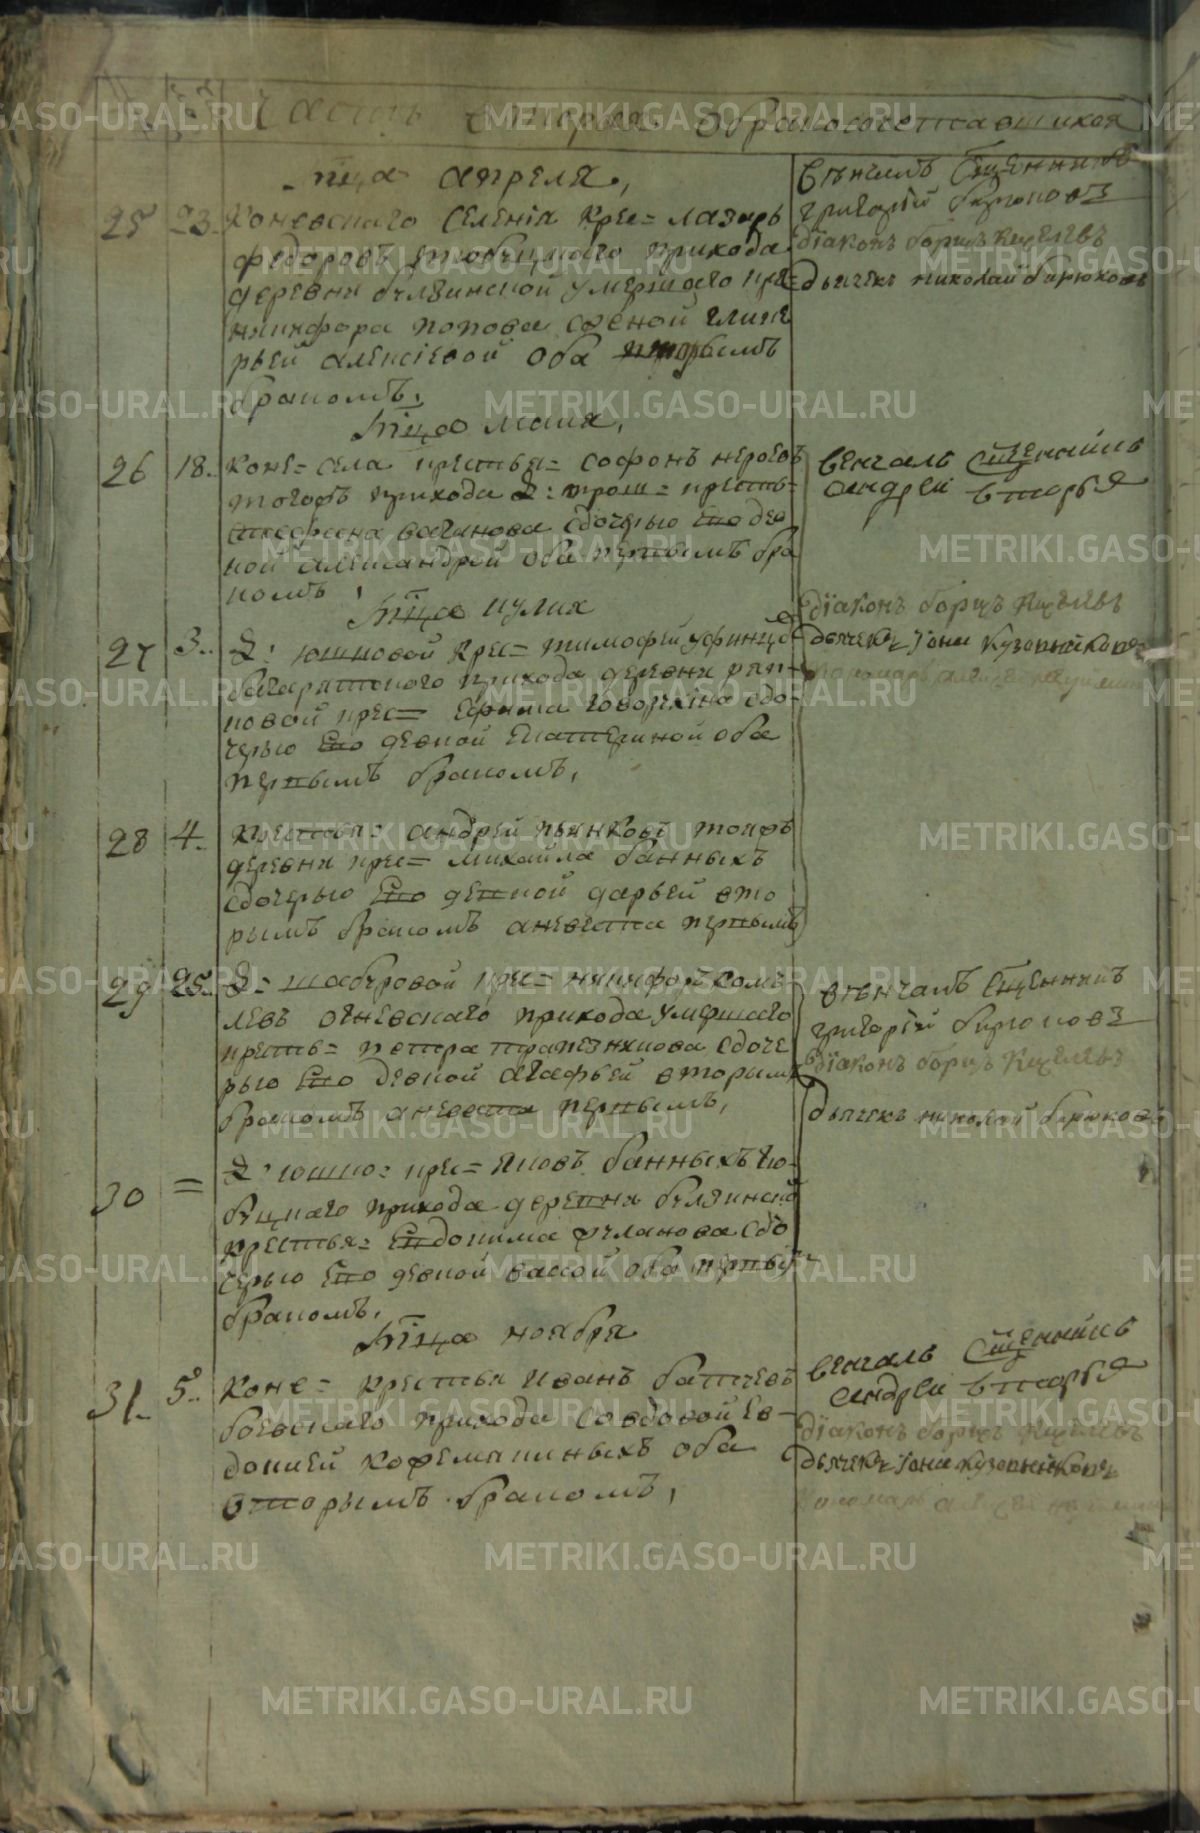 Часть вторая о бракосочетавшихся
мца апреля,
25 23. Коневскаго селенiя крес= лазарь
федоровъ прихода
деревни булзинской умершаго кре=
никифора попова женой глике
рьей алексiевой оба вторымъ
бракомъ,
венчалъ сщенникъ
григорiй бирюковъ
дiаконъ борисъ Киселевъ
дьячекъ николай бирюковъ
мца маiя,
26 18. коне= села крестья= софонъ
тогожъ прихода д: крсть=
стефана вагинова сдочерью его дев
ной александрой оба первымъ бра
комъ,
венчалъ сщенникъ
андрей втарыя
мца iулия
27 3. д: юшковой крес= тимофей уфинцов
багарятскаго прихода деревни
ковой крес= ефима говорухина сдо=
черью его девкой екатериной оба
первымъ бракомъ,
дiаконъ борисъ Киселевъ
дьячекъ iона
пономарь
28 4. крестья= андрей пьянковъ тояжъ
деревни крес= михайла банныхъ
сдочерью его девкой дарьей вто
рымъ бракомъ аневеста первымъ
29 25. д= шабуровой крес= никифоръ комы=
левъ огневскаго прихода умершаго
крсть= петра трапезникова сдоче
рью его девкой агафьей вторымъ
бракомъ аневеста первымъ,
венчалъ сщенникъ
григорiй бирюковъ
дiаконъ борисъ Киселевъ
дьячекъ николай бирюковъ
30 = д: юшко: крес= яковъ банныхъ тю=
букскаго прихода деревни булзинской
крестья= евдокима сдо
черью его девкой вассой оба первым
бракомъ,
мца ноября
31. 5. коне= крестья иванъ батуевъ
боевскаго прихода совдовой ев=
докией кожемякиныхъ оба
вторымъ бракомъ,
венчалъ сщенникъ
андрей втарыя
дiаконъ борисъ Киселевъ
дьячекъ iона
пономарь
METRIKI.GASO-URAL.RU